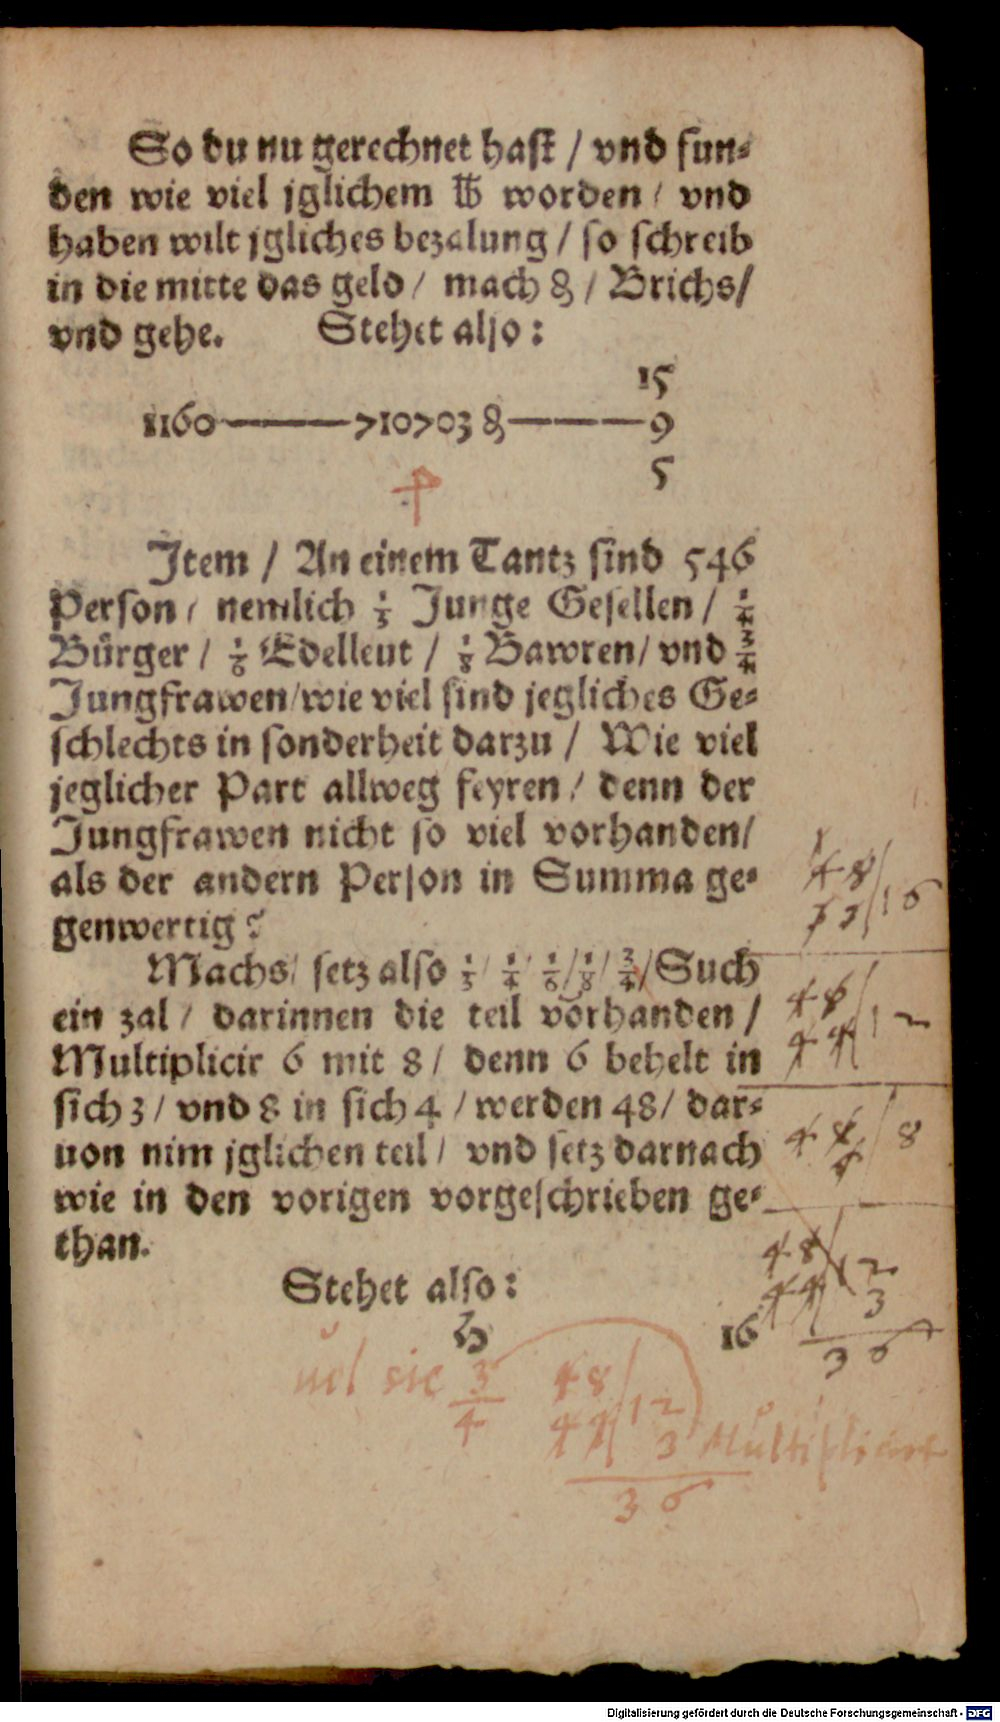 So du nu gerechnet hast / vnd fun⸗
den wie viel jglichem ℔ worden / vnd
haben wilt jgliches bezalung / so schreib
in die mitte das geld / mach ₰ / Brichs /
vnd gehe. Stehet also:
15
1160 ——— 710703 ₰ ——— 9
5
Item / An einem Tantz sind 546
Person / nemlich 1/3 Junge Gesellen / 1/4
Bürger / 1/6 Edelleut / 1/8 Bawren / vnd 3/4
Jungfrawen / wie viel sind jegliches Ge⸗
schlechts in sonderheit darzu / Wie viel
jeglicher Part allweg feyren / denn der
Jungfrawen nicht so viel vorhanden /
als der andern Person in Summa ge⸗
genwertig?
Machs / setz also 1/3 / 1/4 / 1/6 / 1/8 / 3/4 / Such
ein zal / darinnen die teil vorhanden /
Multiplicir 6 mit 8 / denn 6 behelt in
sich 3 / vnd 8 in sich 4 / werden 48 / dar⸗
uon nim jglichen teil / vnd setz darnach
wie in den vorigen vorgeschrieben ge⸗
than.
Stehet also:
16
48 / 16
33
48 / 12
44
48 / 8
6
48 / 12
44 3
36
uel sic 3/4 48 / 12
44 3 Multiplicirt
36
Digitalisierung gefördert durch die Deutsche Forschungsgemeinschaft - DFG